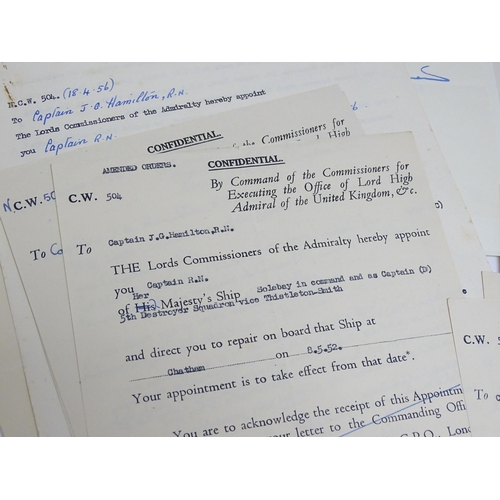 N.C.W. 504. (18.4.56)
To Captain J.G. Hamilton, R.N.
The Lords Commissioners of the Admiralty hereby appoint
you Captain R.N.
CONFIDENTIAL.
the Commissioners for
Lord High
AMENDED ORDERS.
CONFIDENTIAL.
C.W. 504
By Command of the Commissioners for
Executing the Office of Lord High
Admiral of the United Kingdom, &c.
To Captain J.G.Hamilton,R.N.
THE Lords Commissioners of the Admiralty hereby appoint
you Captain R.N.
Her
of His Majesty's Ship Solebay in command and as Captain (D)
5th Destroyer Squadron vice Thistleton-Smith
and direct you to repair on board that Ship at
Chatham on 8.5.52.
Your appointment is to take effect from that date*.
You are to acknowledge the receipt of this Appointm
your letter to the Commanding Offi
G.P.O., Lond
N C.W. 50
To Ca
C.W. 5
To